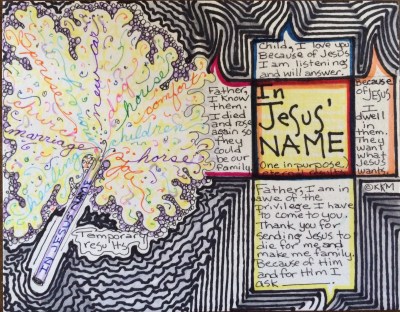 child, I love you
Because of Jesus
I am listening
and will answer.
Father,
I know
them.
I died
and rose
again so
they
could
be our
family.
In
Jesus'
NAME
One in purpose.
Because
of Jesus
I
dwell
in
them.
They
want
what
Jesus
wants.
©KKM
Father, I am in
awe of the
privilege I have
to come to you.
Thank you for
sending Jesus to
die for me and
make me family.
Because of Him
and for Him I
ask
new car
house
comfort
marriage
children
horse
IN JESUS' NAME
Temporary
results